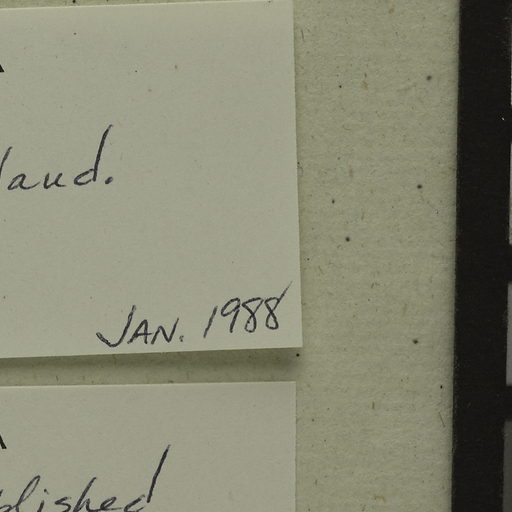 land.
JAN. 1988
blished